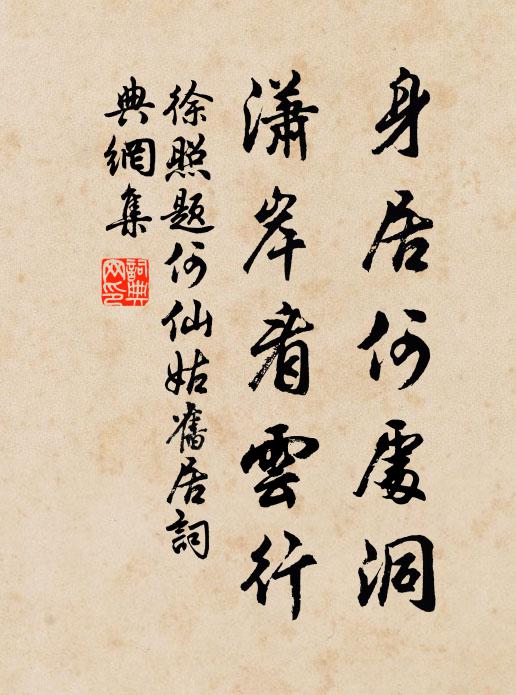 身居何處洞
瀟岸看雲行
徐照題何仙姑舊居詞
典網集
詞典網印